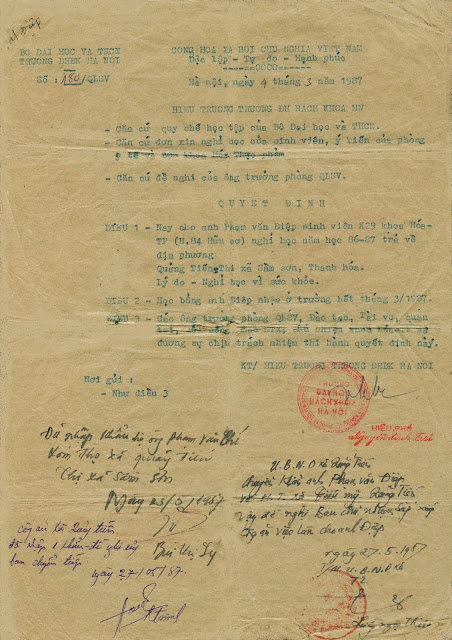 BO DAI HOC VA THCN
TRUONG DHBK HA NOI
Số : 180/QLSV
CONG HOA XA HOI CHU NGHIA VIET NAM
Độc lập - Tự do - Hạnh phúc
------oOOo------
Hà-nội, ngày 4 tháng 3 năm 1987
HIEU TRUONG TRUONG DH BACH KHOA HN
- Căn cứ quy chế học tập của Bộ Đại học và THCN.
- Căn cứ đơn xin nghỉ học của sinh viên, ý kiến của phòng
y tế và Ban khoa Hóa Thực phẩm
- Căn cứ đề nghị của ông trưởng phòng QLSV.
QUYET DINH
DIEU 1 - Nay cho anh Phạm văn Điệp sinh viên K29 khoa Hóa-
TP (N.84 Hữu cơ) nghỉ học năm học 86-87 trở về
địa phương
Quảng Tiến Thị xã Sầm sơn, Thanh hóa.
Lý do - Nghỉ học vì sức khỏe.
DIEU 2 - Học bổng anh Điệp nhận ở trường hết tháng 3/1987.
DIEU 3 - Các ông trưởng phòng QLSV, Đào tạo, Tài vụ, quản
đương sự chịu trách nhiệm thi hành quyết định này.
KT/ HIEU TRUONG TRUONG DHBK HA NOI
Nơi gửi :
- Như điều 3
TRUONG
ĐẠI HỌC
BÁCH KHOA
HÀ NỘI
HIỆU PHÓ
Đã nhập khẩu
xã Quảng Tiến
Thị xã Sầm Sơn
Ngày 25/5/1987
Công an xã Quảng tiến
Ngày 27/05/87.
U.B.N.D xã Quảng Tiến
chuyển khẩu anh Phạm văn Điệp
Quảng Tiến
cho anh Điệp
ngày 27.5.1987
T/M U.B.N.D xã